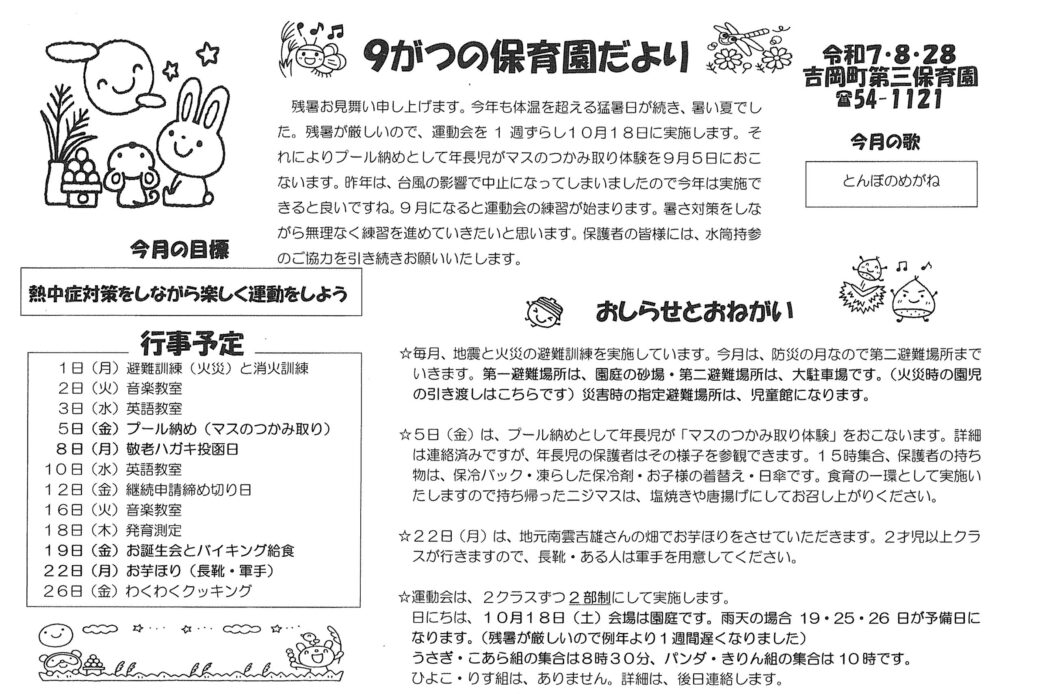 9がつの保育園だより
令和7・8・28
吉岡町第三保育園
☎54-1121
残暑お見舞い申し上げます。今年も体温を超える猛暑日が続き、暑い夏でし
た。残暑が厳しいので、運動会を1週ずらし10月18日に実施します。そ
れによりプール納めとして年長児がマスのつかみ取り体験を9月5日におこ
ないます。昨年は、台風の影響で中止になってしまいましたので今年は実施で
きると良いですね。9月になると運動会の練習が始まります。暑さ対策をしな
がら無理なく練習を進めていきたいと思います。保護者の皆様には、水筒持参
のご協力を引き続きお願いいたします。
今月の歌
とんぼのめがね
今月の目標
熱中症対策をしながら楽しく運動をしよう
行事予定
1日(月)避難訓練(火災)と消火訓練
2日(火)音楽教室
3日(水)英語教室
5日(金)プール納め(マスのつかみ取り)
8日(月)敬老ハガキ投函日
10日(水)英語教室
12日(金)継続申請締め切り日
16日(火)音楽教室
18日(木)発育測定
19日(金)お誕生会とバイキング給食
22日(月)お芋ほり(長靴・軍手)
26日(金)わくわくクッキング
おしらせとおねがい
☆毎月、地震と火災の避難訓練を実施しています。今月は、防災の月なので第二避難場所まで
いきます。第一避難場所は、園庭の砂場・第二避難場所は、大駐車場です。(火災時の園児
の引き渡しはこちらです)災害時の指定避難場所は、児童館になります。
☆5日(金)は、プール納めとして年長児が「マスのつかみ取り体験」をおこないます。詳細
は連絡済みですが、年長児の保護者はその様子を参観できます。15時集合、保護者の持ち
物は、保冷バック・凍らした保冷剤・お子様の着替え・日傘です。食育の一環として実施い
たしますので持ち帰ったニジマスは、塩焼きや唐揚げにしてお召し上がりください。
☆22日(月)は、地元南雲吉雄さんの畑でお芋ほりをさせていただきます。2才児以上クラ
スが行きますので、長靴・ある人は軍手を用意してください。
☆運動会は、2クラスずつ2部制にして実施します。
日にちは、10月18日(土)会場は園庭です。雨天の場合 19・25・26 日が予備日に
なります。(残暑が厳しいので例年より1週間遅くなりました)
うさぎ・こあら組の集合は8時30分、パンダ・きりん組の集合は10時です。
ひよこ・りす組は、ありません。詳細は、後日連絡します。